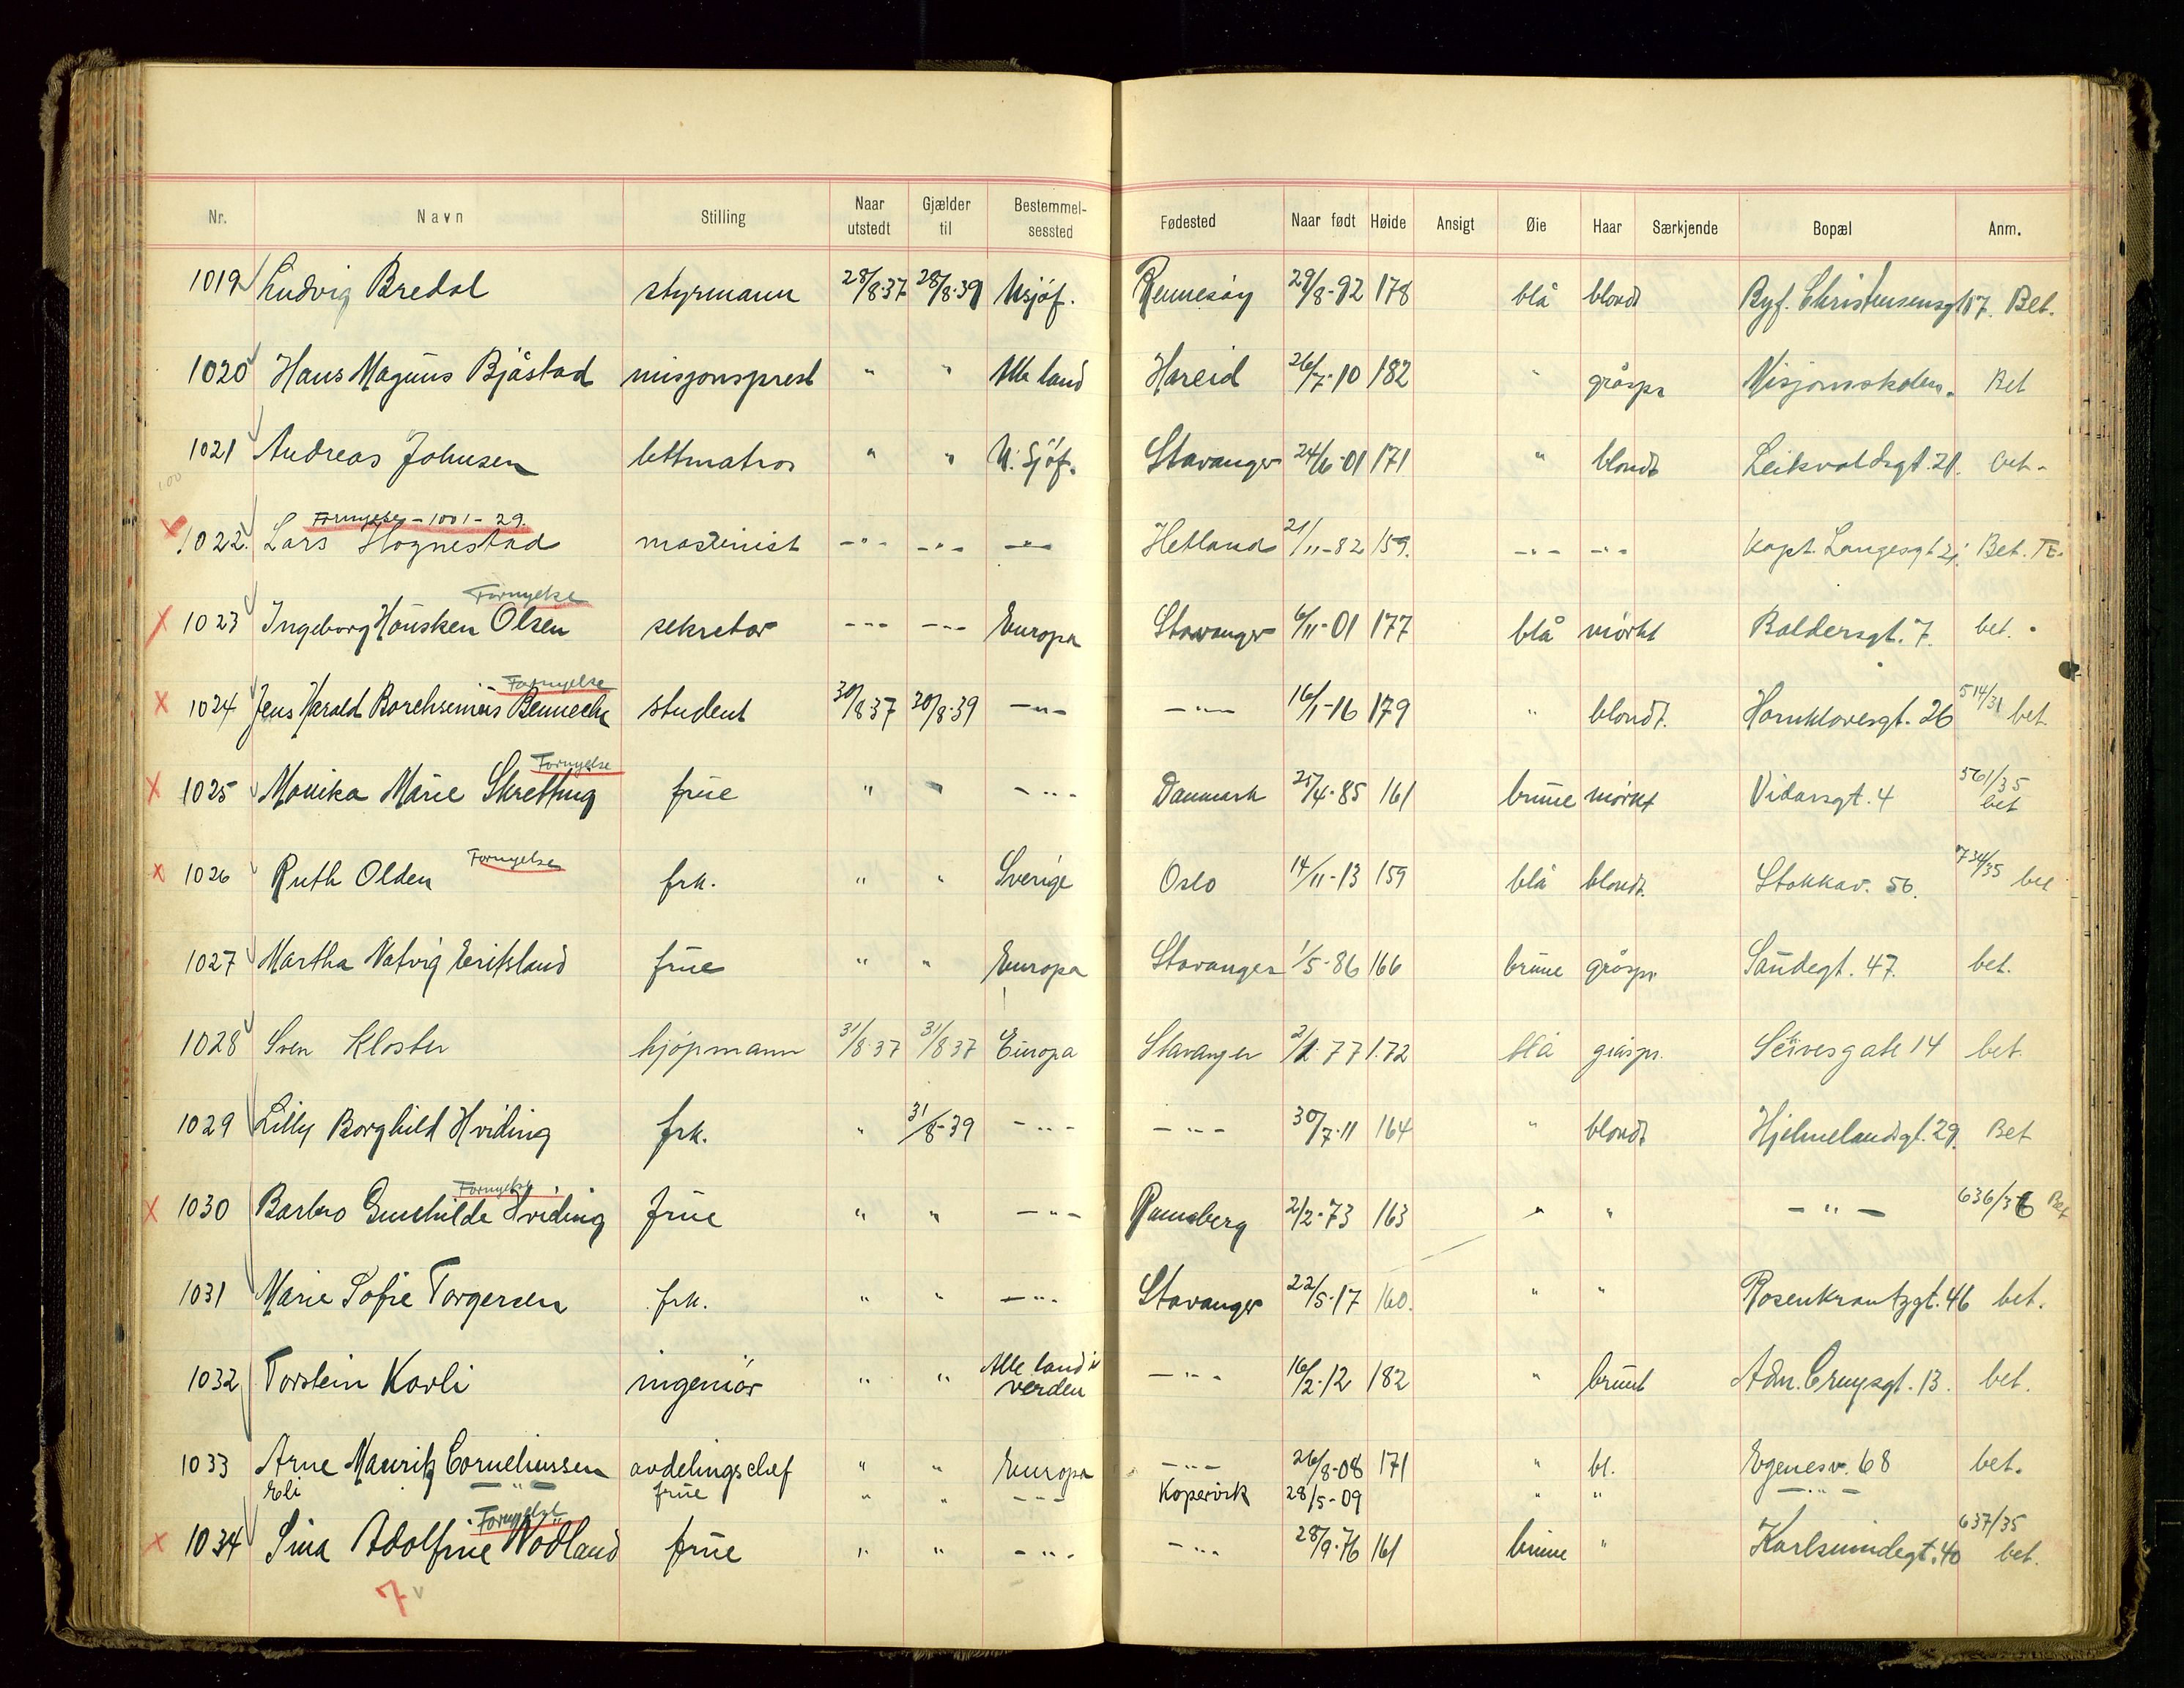 Nr. Navn Stilling Naar utstedt Gjælder til Bestemmelsessted Fødested Naar født Høide Ansigt Øie Haar Særkjende Bopæl Anm.
1019 Ludvig Bredal styrmann 28/8-37 28/8-39 Usjöf. Rennesöy 29/8-92 178 blå blondt Byf. Christensensgt 17. Bet.
1020 Hans Magnus Bjåstad misjonsprest " " Alle land Hareid 26/7-10 182 " gråspr Misjonsskolen. Bet
1021 Andreas Johnsen lettmatros " " U. Sjöf. Stavanger 24/6-01 171 " blondt Leikvoldsgt. 21. bet.
1.00
Fornyelse - 1001 - 29.
1022. Lars Hognestad maskinist -"- -"- -"- Hetland 21/11-82 159. -"- -"- Kapt. Langesgt 21. Bet. TE.
Fornyelse
1023 Ingeborg Hausken Olsen sekretær -"- -"- Europa Stavanger 6/11-01 177 blå mörkt Baldersgt. 7. bet.
Fornyelse
1024 Jens Harald Borchsenius Bennech student 30/8-37 30/8-39 -"- -"- 16/1-16 179 " blondt. Hornklovesgt. 26 514/31 bet
Fornyelse
1025 Monika Marie Skretting frue " " -"- Danmark 25/4-85 161 brune mörkt Vidarsgt. 4 561/35 bet
Fornyelse
1026 Ruth Olden frk. " " Sverige Oslo 14/11-13 159 blå blondt. Stokkav. 56. 734/35 bet
1027 Martha Natvig Eriksland frue " " Europa Stavanger 1/5-86 166 brune gråspr Sandegt. 47. bet.
1028 Sven Kloster kjöpmann 31/8-37 31/8 37 Europa Stavanger 2/1-77 1.72 blå gråspr. gate 14 bet.
1029 Lilly Borghild Hviding frk. " 31/8-39 -"- -"- 30/7-11 164 " blondt Hjelmelandsgt. 29. Bet
Fornyelse
1030 Barbro Gunhilde Hviding frue " " -"- Ramsberg 2/2-73 163 " " -"- 636/36 Bet
1031 Marie Sofie Torgersen frk. " " -"- Stavanger 22/5-17 160. " " Rosenkrantzgt. 46 bet.
1032 Torstein Korli ingeniör " " Alle land i verden -"- 16/2-12 182 " brunt Adm. Cruysgt. 13. bet.
1033 Arne Mauritz Corneliussen avdelingschef " " Europa -"- 26/8-08 171 " bl. Egenesv. 68 bet.
Eli -"- frue " " -"- Kopervik 28/5-09 " " -"-
Fornyelse
1034 Sina Adolfine Vodland frue " " -"- -"- 28/9-76 161 brune " Karlsmindegt. 40 637/35 bet.
7 v